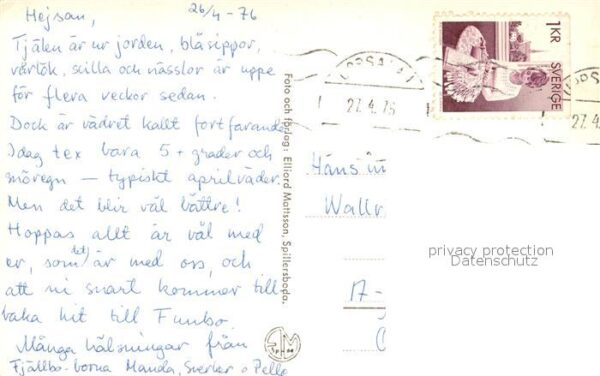 Hejsan, 26/4 - 76
Tjälen är ur jorden, blåsippor,
vårlök, scilla och nässlor är uppe
för flera veckor sedan.
Dock är vädret kallt fortfarande
Idag tex bara 5 + grader och
duggregn — typiskt aprilväder.
Men det blir väl bättre!
Hoppas allt är väl med
er, som det är med oss, och
att ni snart kommer till
baka hit till Funbo.
Många hälsningar från
Fjällbo-borna Manda, Sverker o Pelle
Foto och förlag: Elliord Mattsson, Spillersboda.
1 KR SVERIGE
27.4.76
27.4
Häns
Wall
A-
privacy protection
Datenschutz